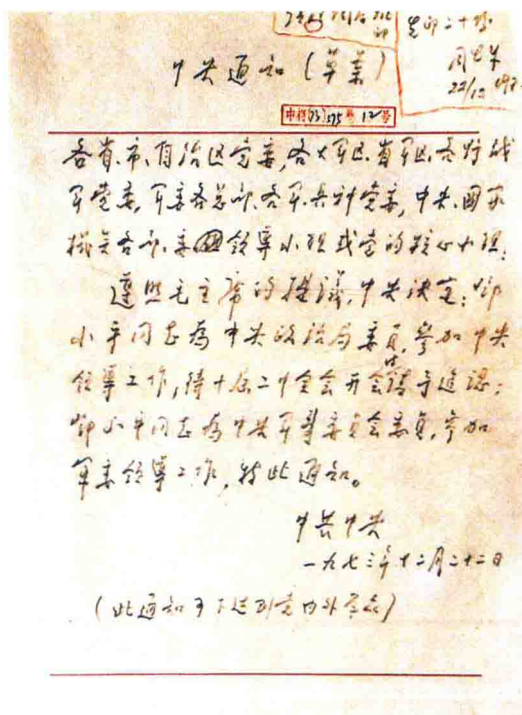 中央通知（草案）
各省、市、自治区党委，各大军区、省军区、各野战
军党委，军委各总部、各军兵种党委，中央、国家
机关各部、委领导小组或党的核心小组：
遵照毛主席的提议，中央决定：邓
小平同志为中央政治局委员，参加中央
领导工作，待十届二中全会开会时请予追认；
邓小平同志为中央军事委员会委员，参加
军委领导工作，特此通知。
中共中央
一九七三年十二月二十二日
（此通知可下达到党内外群众）